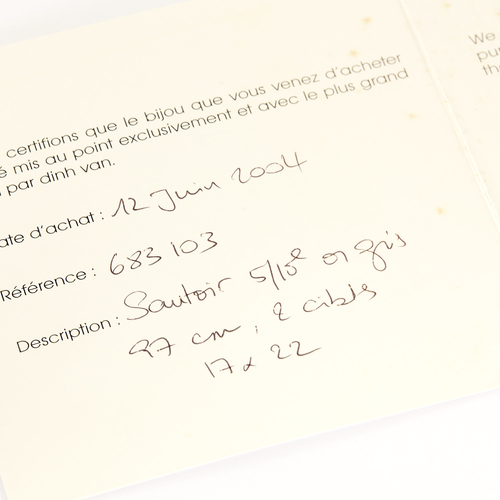 certifions que le bijou que vous venez d'acheter
é mis au point exclusivement et avec le plus grand
par dinh van.
ate d'achat : 12 Juin 2004
Référence : 683 103
Description : Sautoir 5/10e or gris
97 cm, 2 cibles
17 x 22
We
pu
th